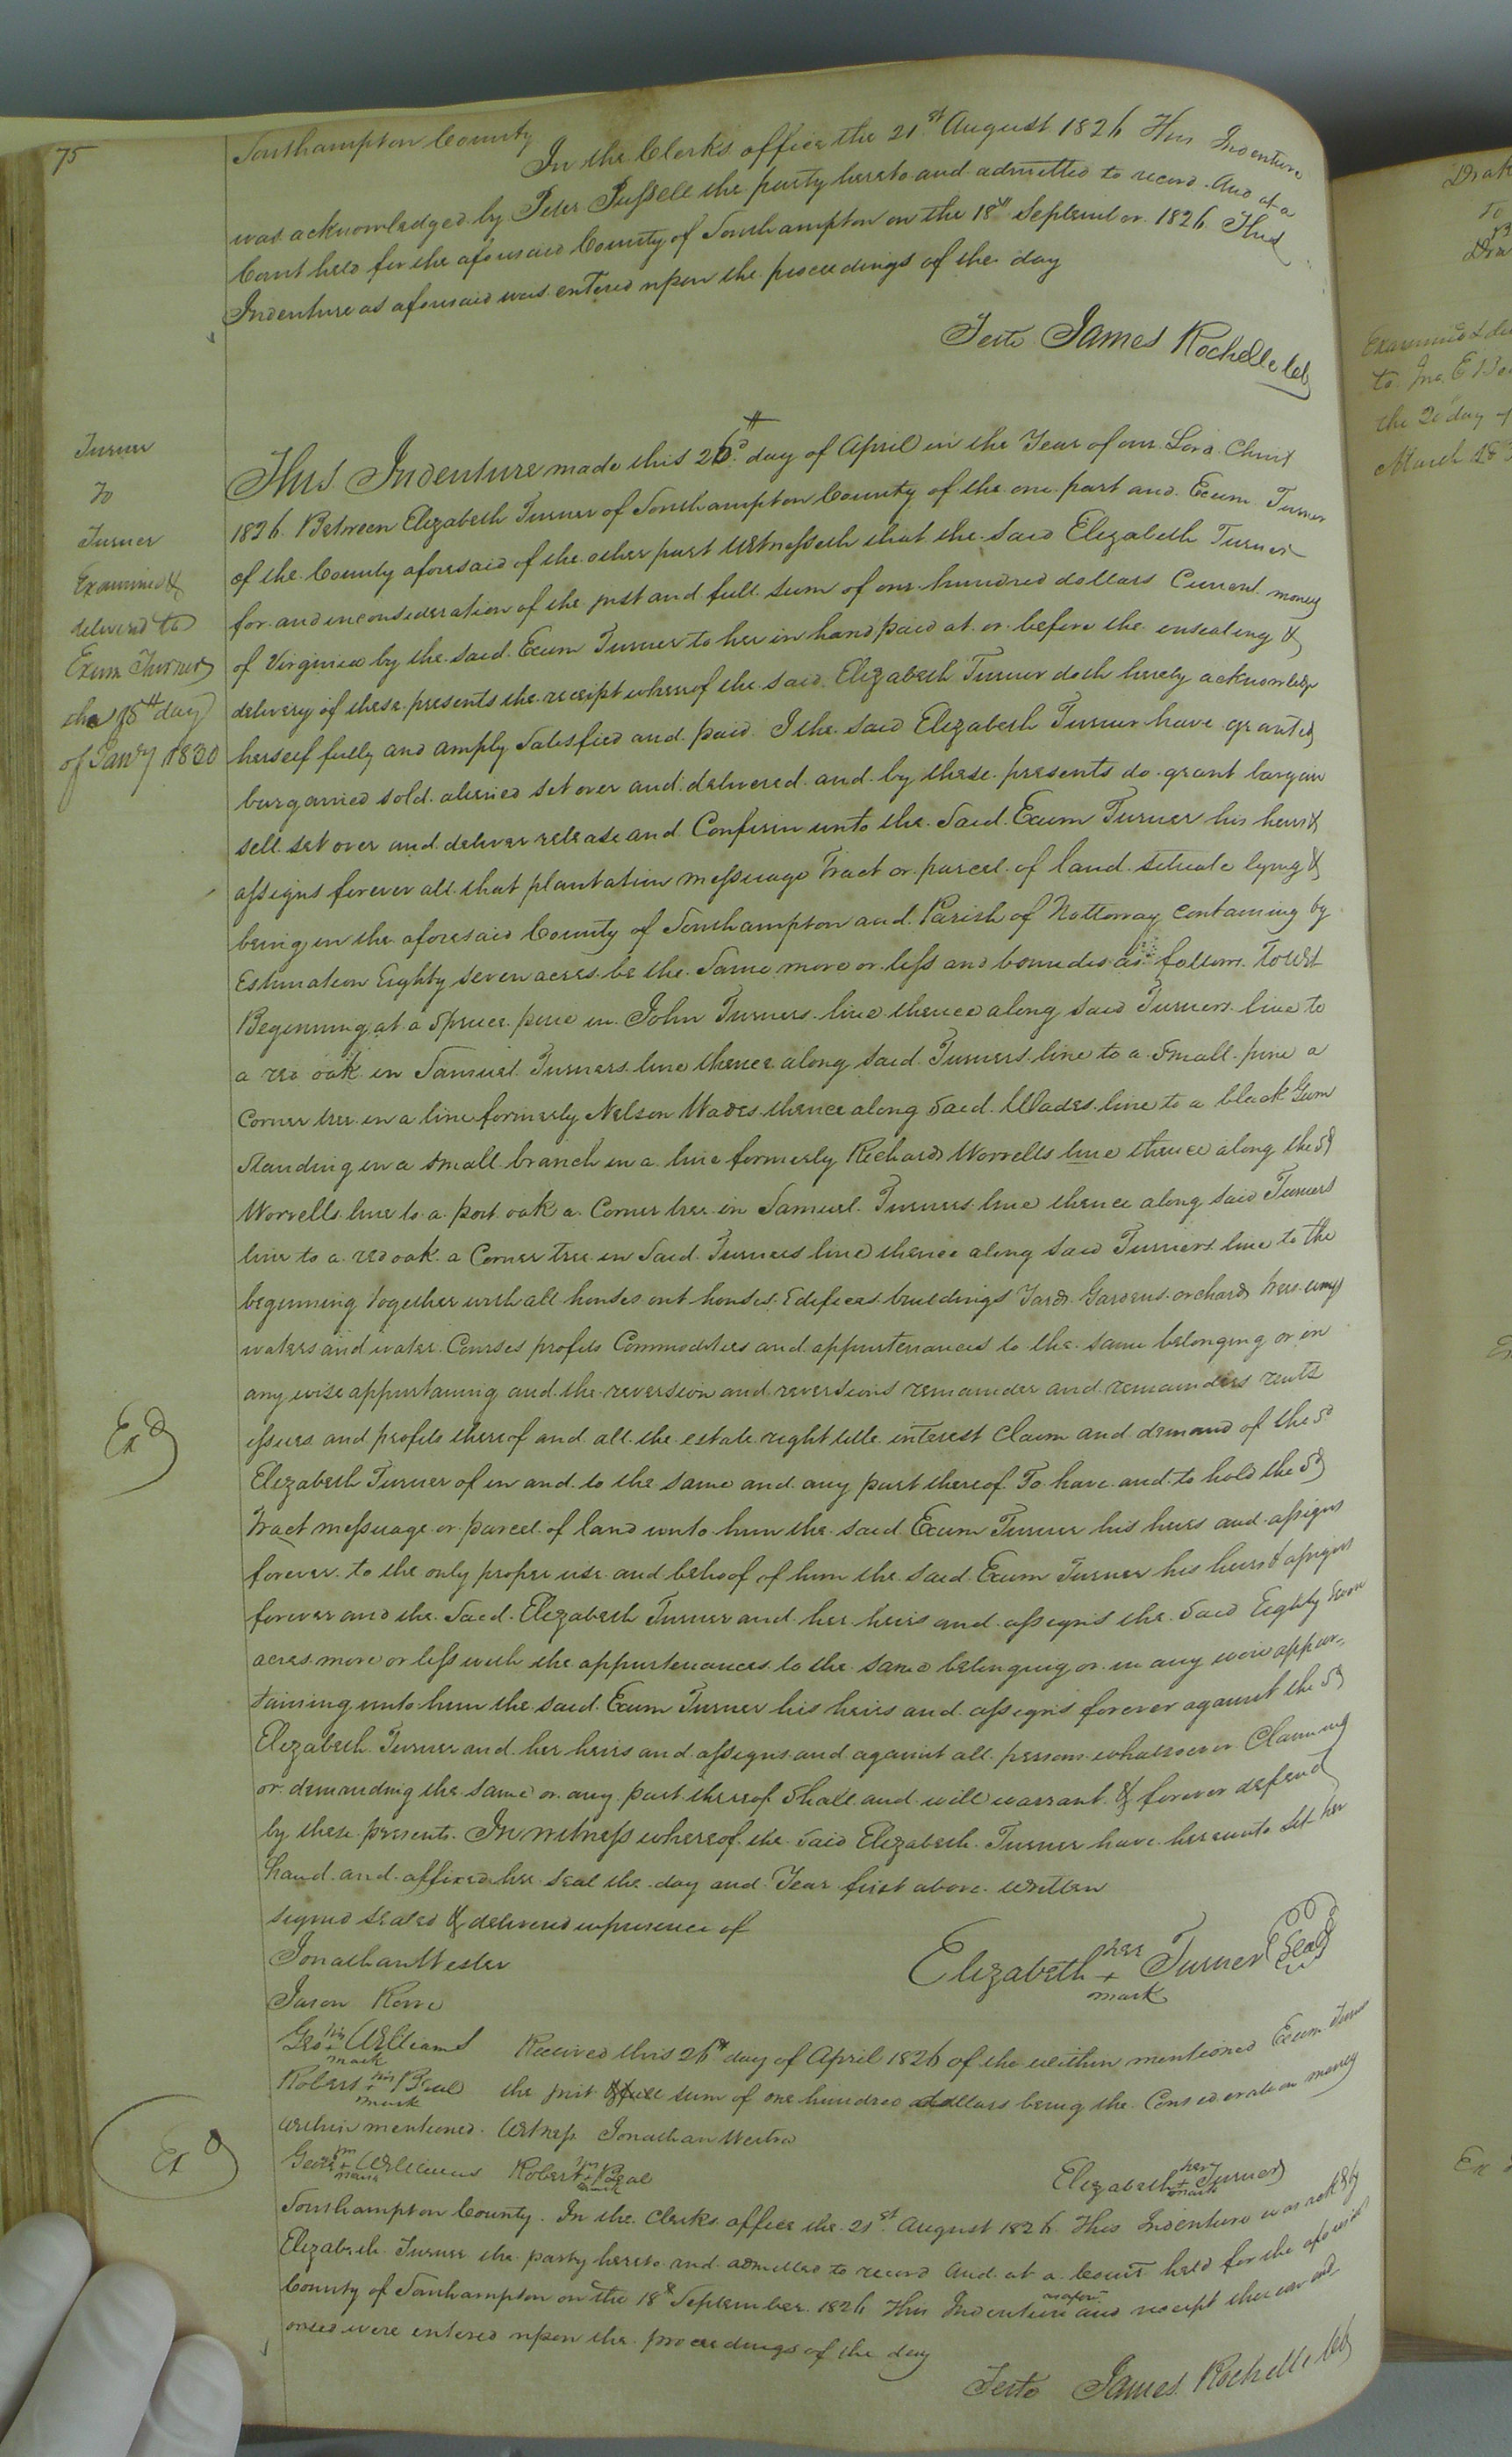 75
Southampton County
In the Clerks office the 21st August 1826 This Indenture
was acknowledged by Peter Pussell the party hereto and admitted to record. And at a
Court held for the aforesaid County of Southampton on the 18th September 1826. This
Indenture as aforesaid was entered upon the proceedings of the day
Teste James Rochelle Clk
Turner
To
Turner
Examined &
delivered to
Exum Turner
the 18th day
of Jany 1830
This Indenture made this 26th day of April in the Year of our Lord Christ
1826. Between Elizabeth Turner of Southampton County of the one part and Exum Turner
of the County aforesaid of the other part Witnesseth that the said Elizabeth Turner
for and in consideration of the just and full sum of one hundred dollars Current money
of Virginia by the said Exum Turner to her in hand paid at or before the ensealing &
delivery of these presents the receipt whereof the said Elizabeth Turner doth hereby acknowledge
herself fully and amply Satisfied and paid I the said Elizabeth Turner have granted
bargained sold aliened set over and delivered and by these presents do grant bargain
sell set over and deliver release and Confirm unto the Said Exum Turner his heirs &
assigns forever all that plantation messuage Tract or parcel of land situate lying &
being in the aforesaid County of Southampton and Parish of Nottoway containing by
Estimation Eighty seven acres be the Same more or less and bounded as follows Towit
Beginning at a Spruce pine in John Turners line thence along said Turners line to
a red oak in Samuel Turners line thence along said Turners line to a small pine a
Corner tree in a line formerly Nelson Wades thence along Said Wades line to a black Gum
Standing in a small branch in a line formerly Richard Worrells line thence along the sd
Worrells line to a post oak a Corner tree in Samuel Turners line thence along said Turners
line to a red oak a Corner tree in Said Turners line thence along Said Turners line to the
beginning together with all houses out houses Edifices buildings Yards Gardens orchards trees ways
waters and water Courses profits Commodities and appurtenances to the same belonging or in
any wise appurtaining and the reversion and reversions remainder and remainders rents
issues and profits thereof and all the estate right title interest Claim and demand of the sd
Elizabeth Turner of in and to the same and any part thereof To have and to hold the sd
Tract messuage or parcel of land unto him the said Exum Turner his heirs and assigns
forever to the only proper use and behoof of him the said Exum Turner his heirs & assigns
forever and the Said Elizabeth Turner and her heirs and assigns the Said Eighty Seven
acres more or less with the appurtenances to the same belonging or in any wise appur-
taining unto him the said Exum Turner his heirs and assigns forever against the sd
Elizabeth Turner and her heirs and assigns and against all persons whatsoever Claiming
or demanding the same or any part thereof Shall and will warrant & forever defend
by these presents. In witness whereof the Said Elizabeth Turner have hereunto set her
hand and affixed her seal the day and Year first above written
Exd
signed sealed & delivered in presence of
Jonathan Wester
Elizabeth her + mark Turner (Seal)
Jason Rowe
Geo his + mark Williams Received this 26th day of April 1826 of the within mentioned Exum Turner
Robert his + mark Beal the just & full sum of one hundred dollars being the Consideration money
within mentioned. Witness Jonathan Wester
George his + mark Williams Robert his + mark Beal
Elizabeth her + mark Turner
Exd
Southampton County. In the Clerks office the 21st August 1826. This Indenture was ackd by
Elizabeth Turner the party hereto and admitted to record And at a Court held for the aforesaid
County of Southampton on the 18th September 1826 This Indenture as afors and receipt thereon end-
orsed were entered upon the proceedings of the day
Teste James Rochelle Clk
Drak
To
Dra
Examined & de
to Jno. E
the 20 day of
March 18
Ex